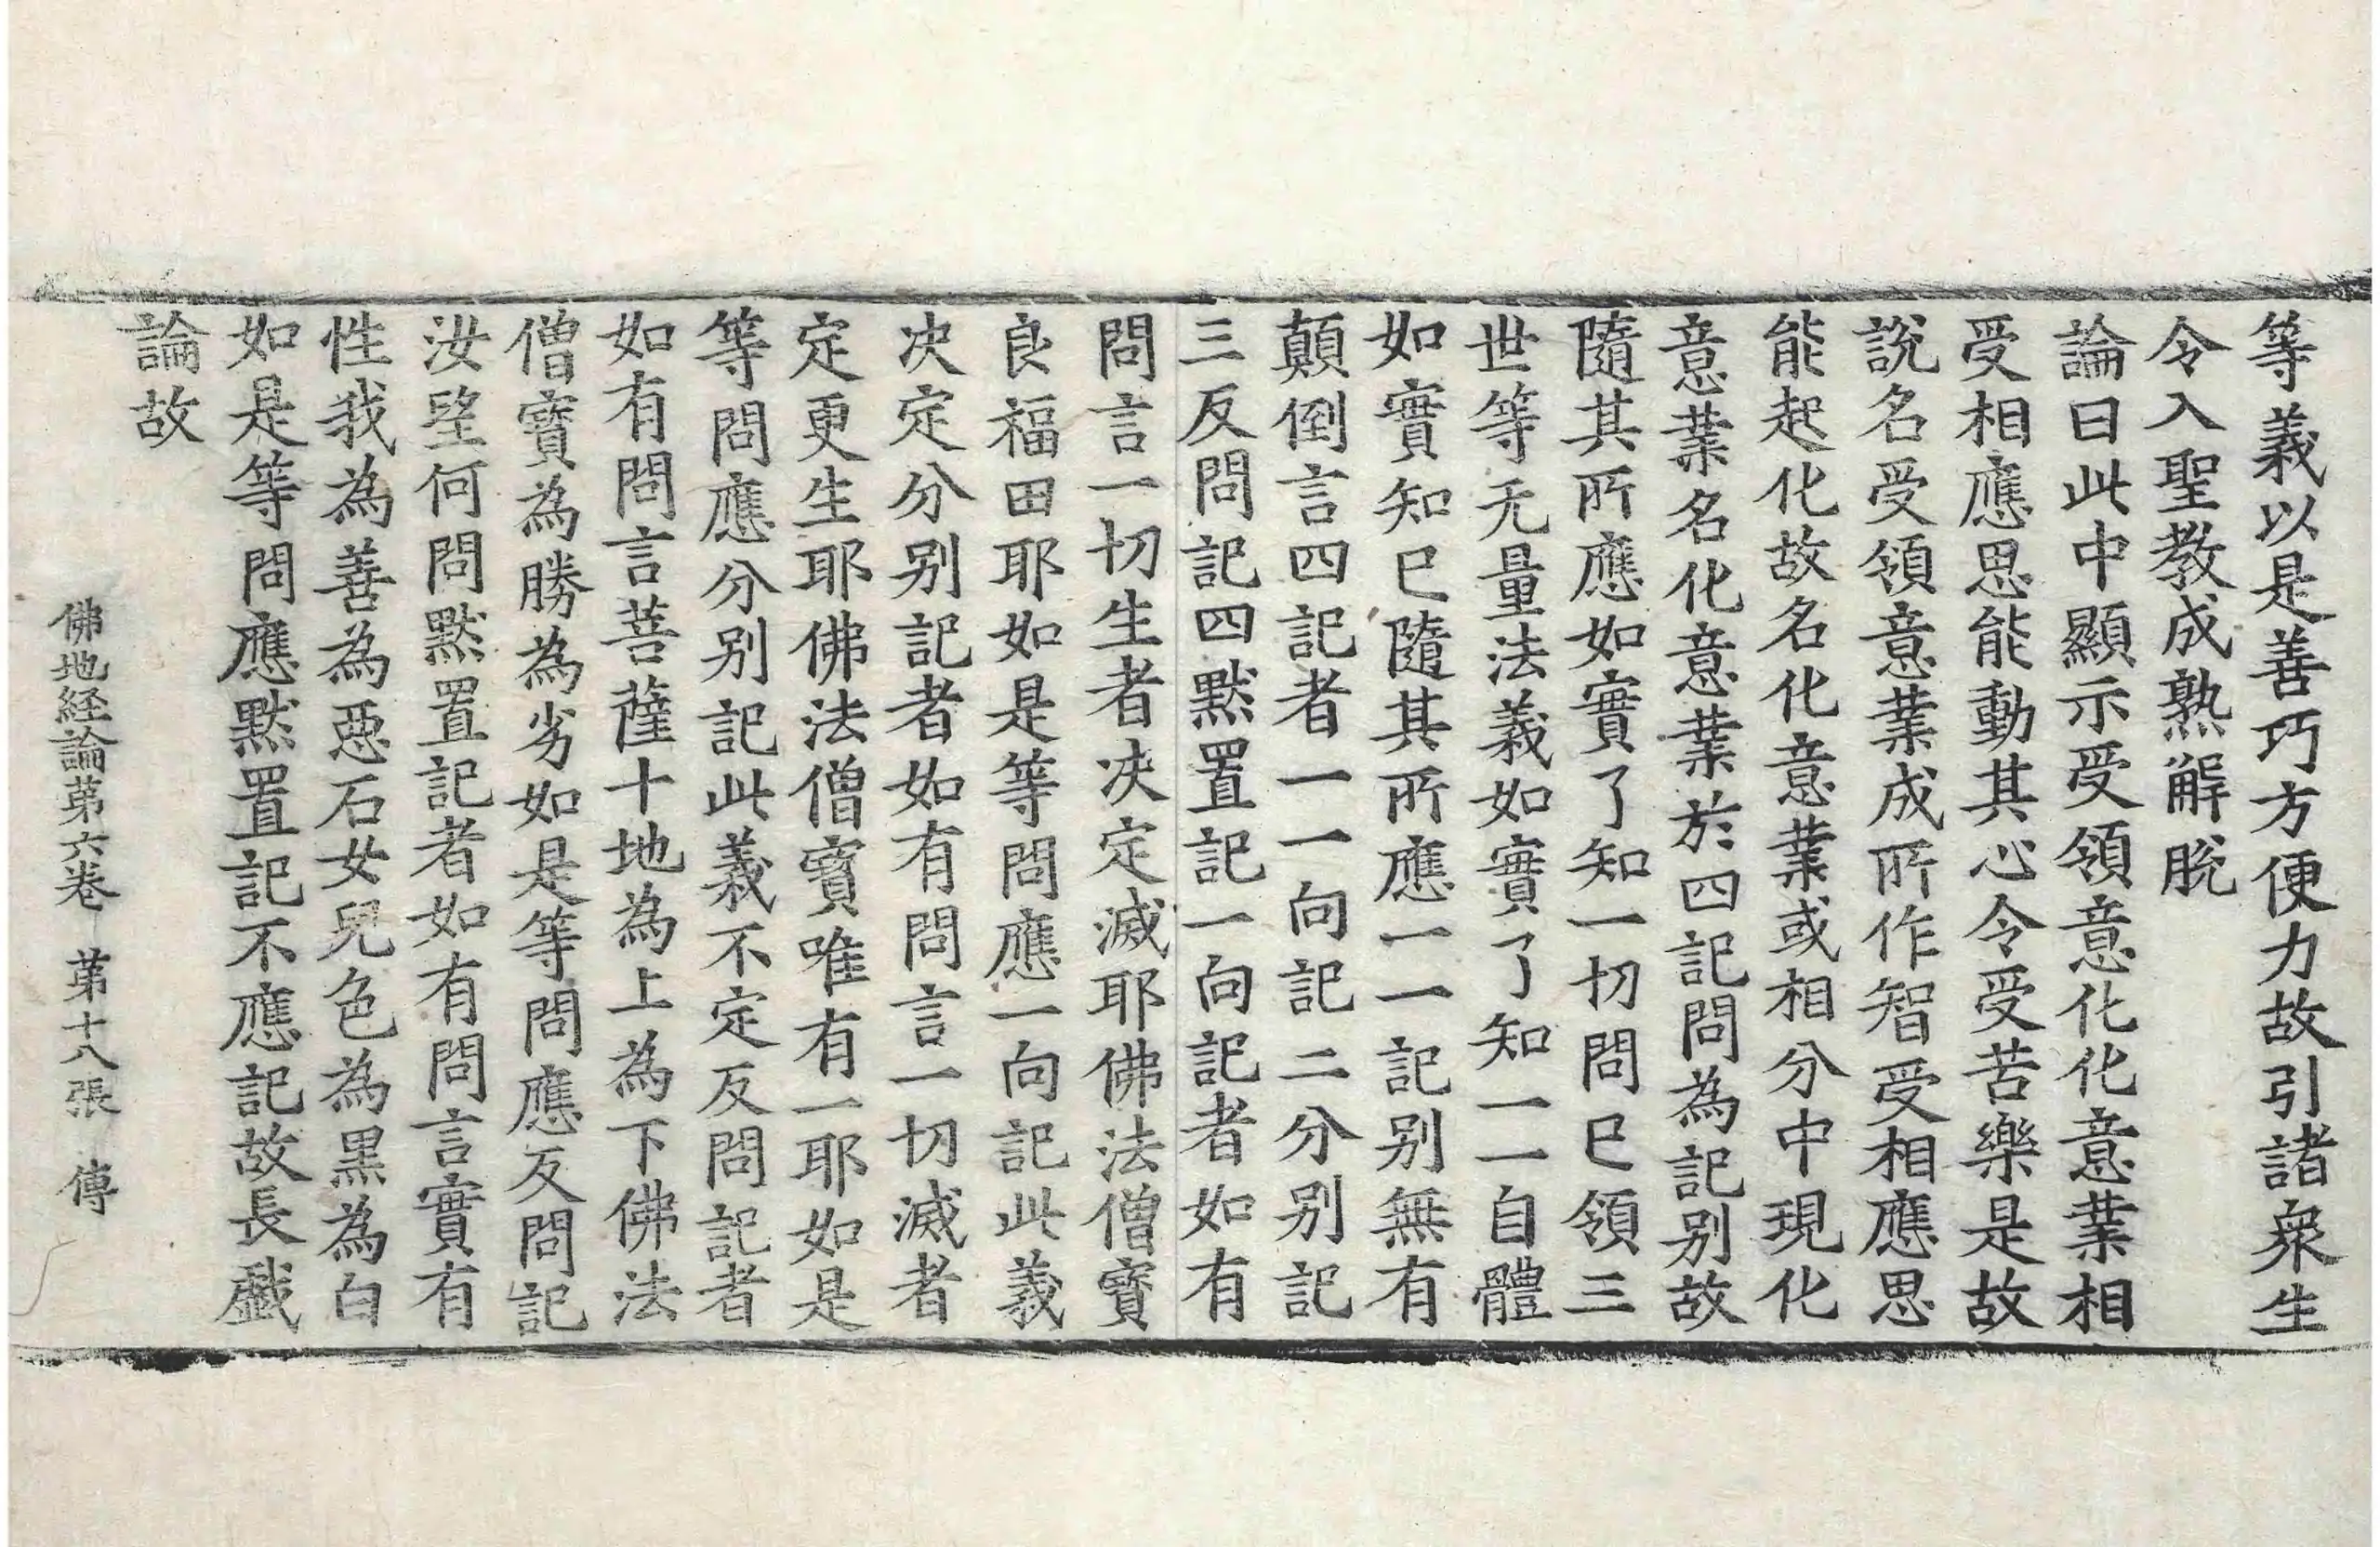 等義以是善巧方便力故引諸衆生
令入聖教成熟解脫
論曰此中顯示受領意化化意業相
受相應思能動其心令受苦樂是故
說名受領意業成所作智受相應思
能起化故名化意業或相分中現化
意業名化意業於四記問為記别故
隨其所應如實了知一切問已領三
世等无量法義如實了知一一自體
如實知已隨其所應一一記别無有
顛倒言四記者一一向記二分别記
三反問記四默置記一向記者如有
問言一切生者决定滅耶佛法僧寶
良福田耶如是等問應一向記此義
决定分别記者如有問言一切滅者
定更生耶佛法僧寳唯有一耶如是
等問應分别記此義不定反問記者
如有問言菩薩十地為上為下佛法
僧寳為勝為劣如是等問應反問記
汝望何問默置記者如有問言實有
性我為善為惡石女兒色為黒為白
如是等問應默置記不應記故長戱
論故
佛地経論苐六卷 苐十八張 傳